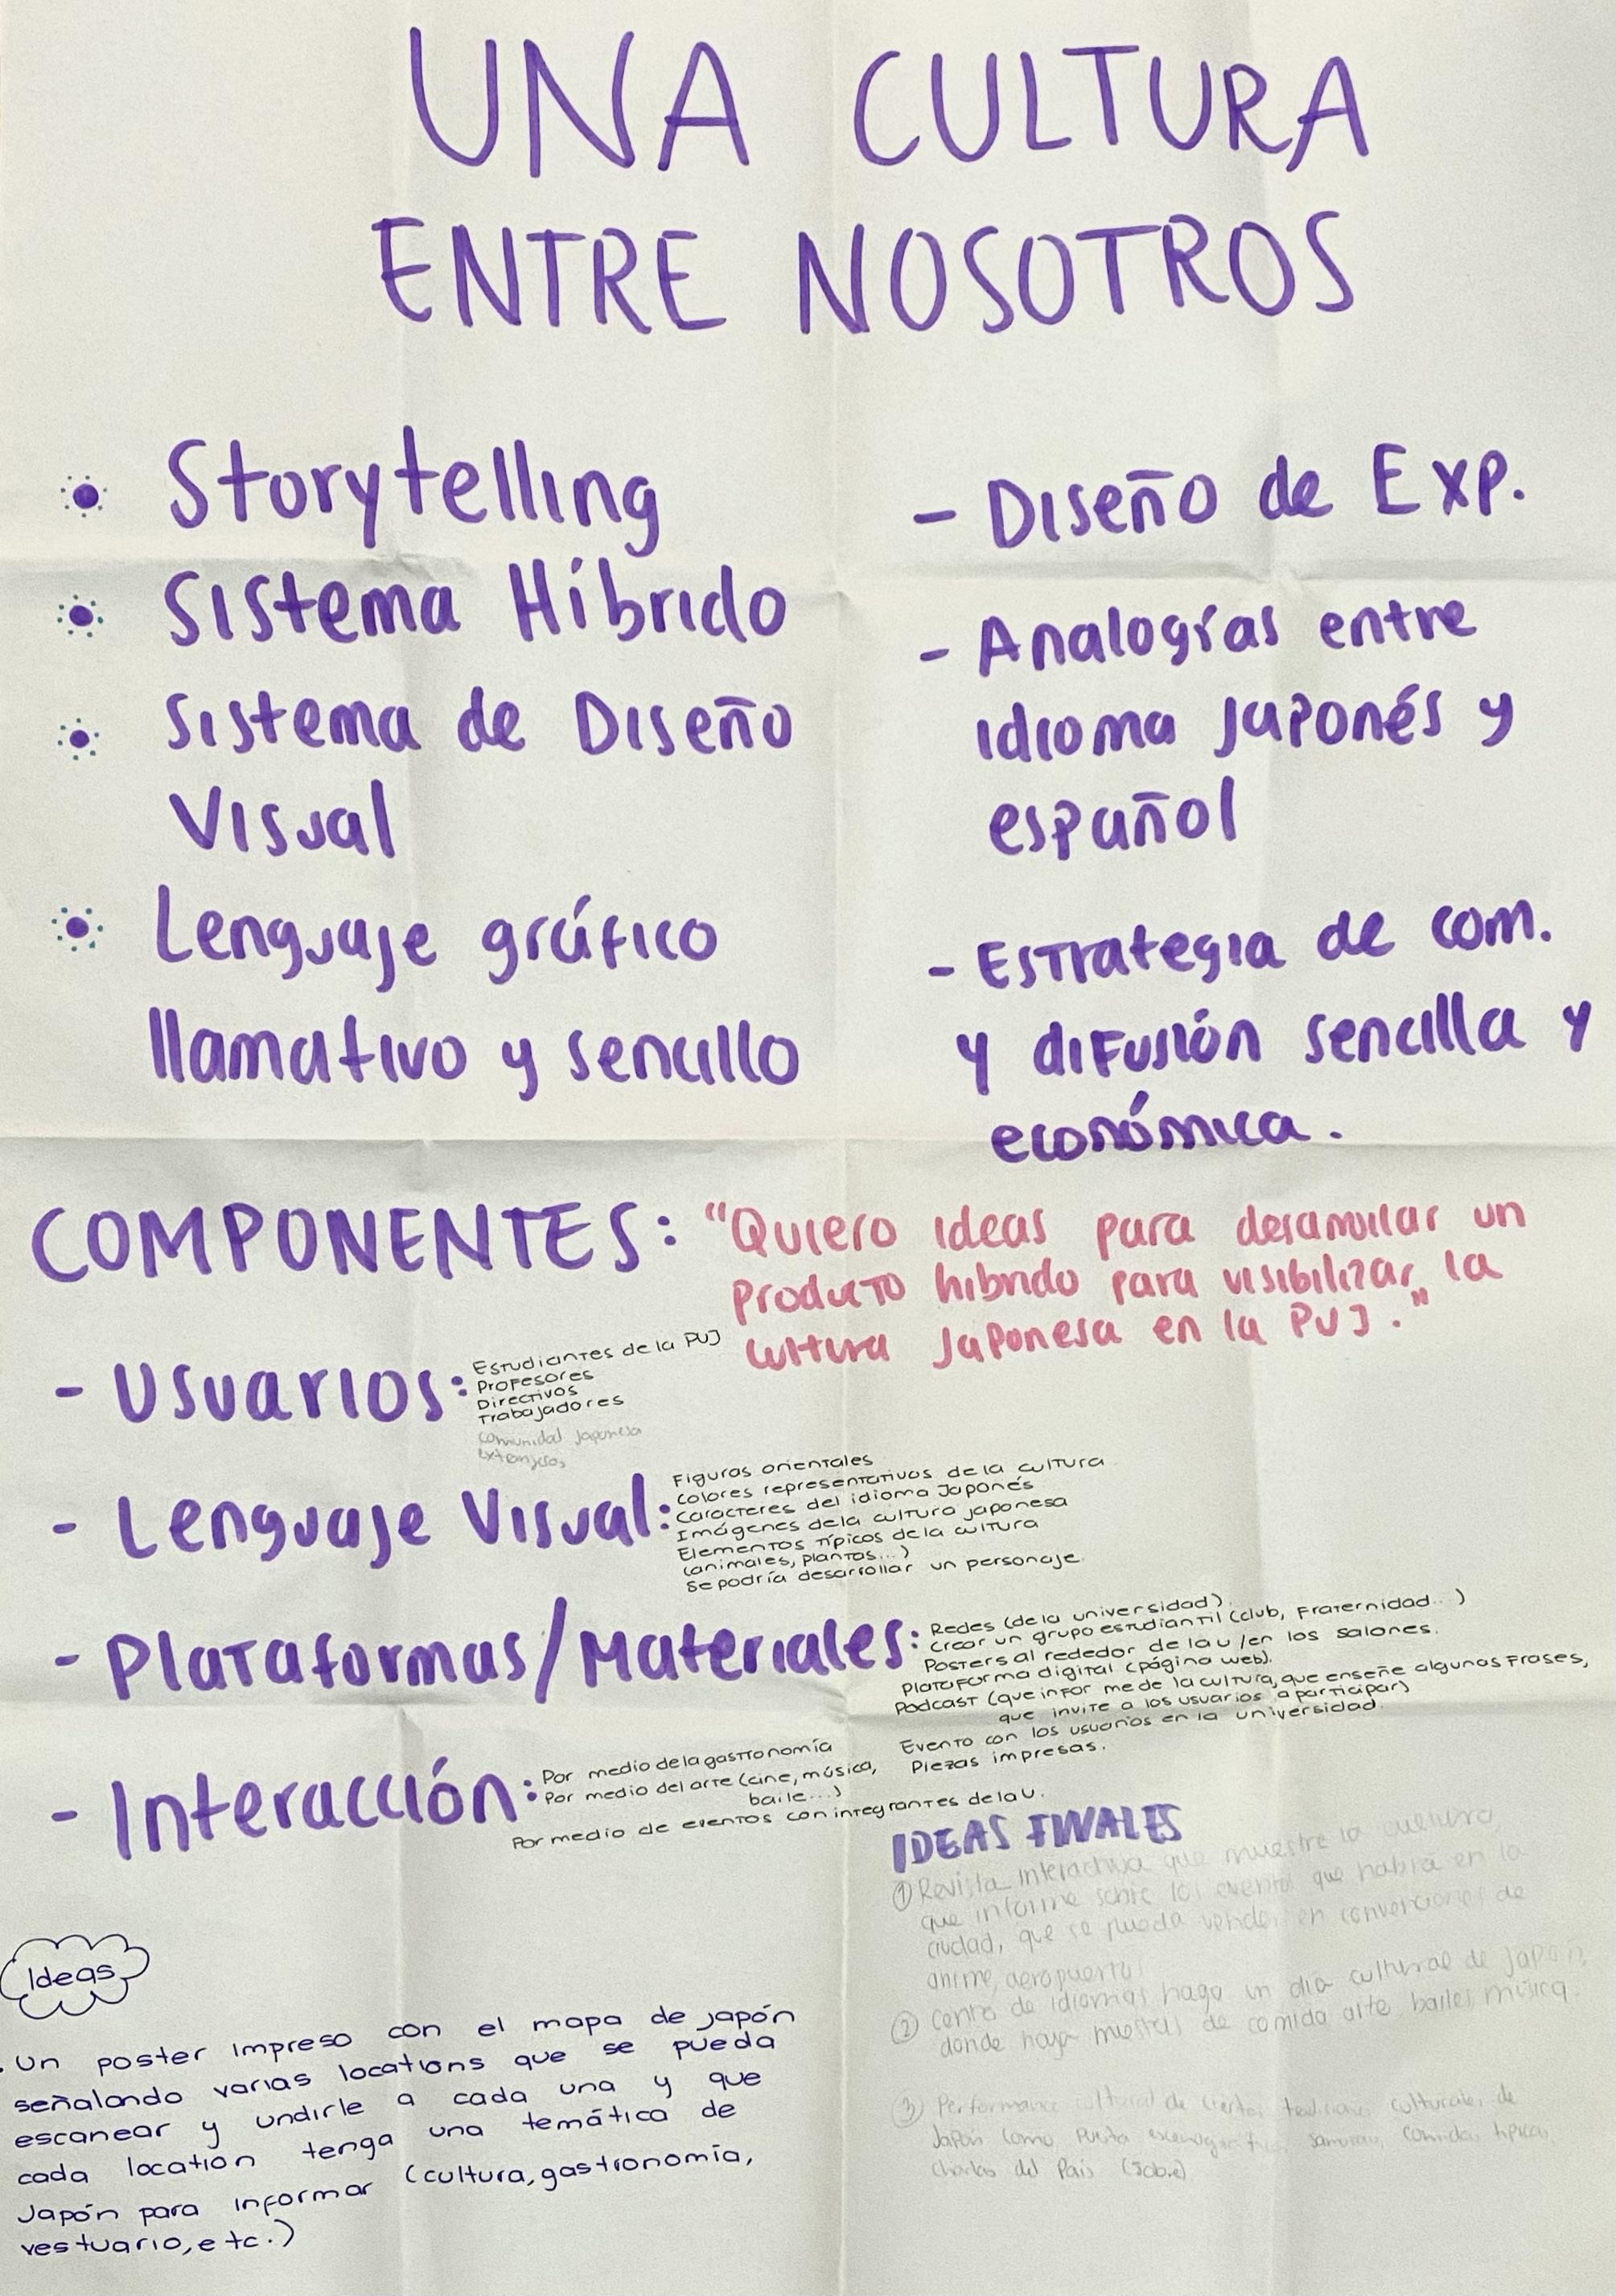 UNA CULTURA
ENTRE NOSOTROS
Storytelling
Sistema Híbrido
Sistema de Diseño
Visual
Lenguaje gráfico
llamativo y sencillo
- Diseño de Exp.
- Analogías entre
idioma Japonés y
español
- Estrategia de com.
y difusión sencilla y
económica.
COMPONENTES:
"Quiero ideas para desarrollar un
producto híbrido para visibilizar la
cultura Japonesa en la PUJ."
- Usuarios:
Estudiantes de la PUJ
Profesores
Directivos
Trabajadores
comunidad Japonesa
extranjeros
- Lenguaje Visual:
Figuras orientales
Colores representativos de la cultura
Caracteres del idioma Japonés
Imágenes de la cultura japonesa
Elementos típicos de la cultura
(animales, plantas...)
Se podría desarrollar un personaje.
- Plataformas/Materiales:
Redes (de la universidad).
Crear un grupo estudiantil (club, Fraternidad...)
Posters al rededor de la u/en los salones.
Plataforma digital (página web).
Podcast (que informe de la cultura, que enseñe algunas frases,
que invite a los usuarios a participar)
Evento con los usuarios en la universidad.
Piezas impresas.
- Interacción:
Por medio de la gastronomía
Por medio del arte (cine, música,
baile...)
Por medio de eventos con integrantes de la U.
IDEAS FINALES
① Revista Interactiva que muestre la cultura,
que informe sobre los eventos que habrá en la
ciudad, que se pueda vender en convenciones de
anime, aeropuertos
② Centro de idiomas haga un día cultural de Japón,
donde haya muestras de comida arte bailes, música.
③ Performance cultural de ciertas tradiciones culturales de
Japón como Puesta escenográfica, samurais, comidas típicas,
charlas del País (sobre)
Ideas
. Un poster impreso con el mapa de japón
señalando varias locations que se pueda
escanear y undirle a cada una y que
cada location tenga una temática de
Japón para informar (cultura, gastronomía,
vestuario, etc.)